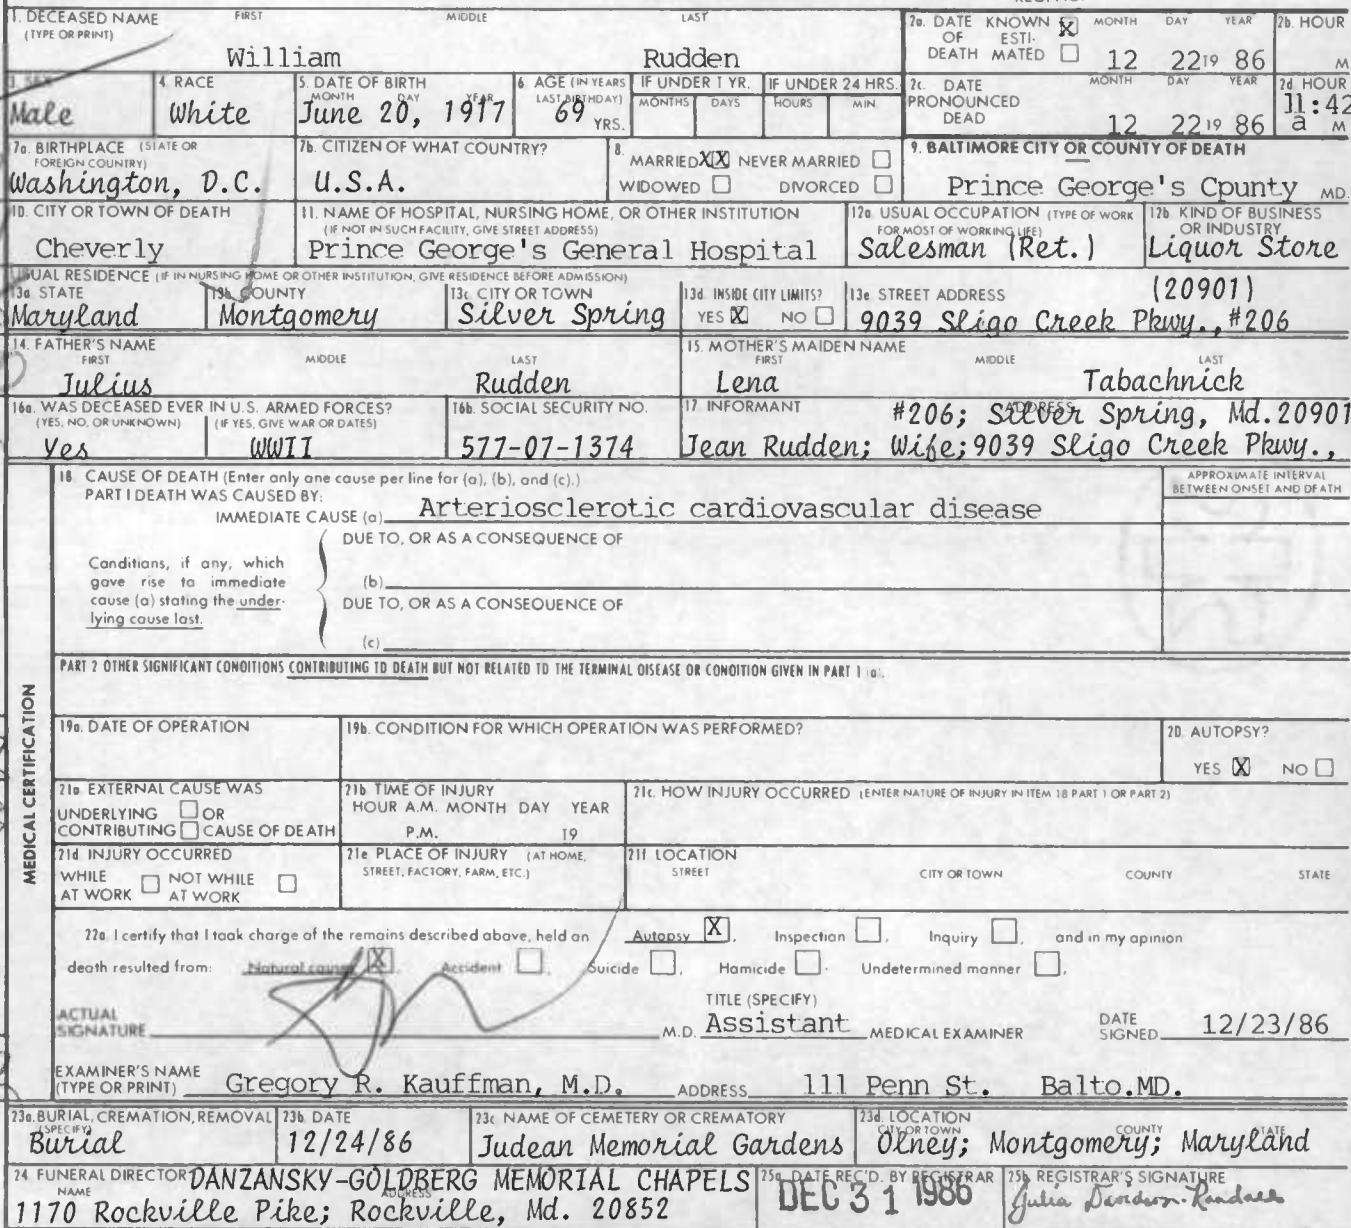 1. DECEASED NAME FIRST MIDDLE LAST
(TYPE OR PRINT)
William Rudden
2a. DATE KNOWN X MONTH DAY YEAR
OF ESTI-
DEATH MATED 12 22 19 86
2b. HOUR
M
3. SEX
Male
4. RACE
White
5. DATE OF BIRTH
MONTH DAY YEAR
June 20, 1917
6. AGE (IN YEARS
LAST BIRTHDAY)
69 YRS.
IF UNDER 1 YR.
MONTHS DAYS
IF UNDER 24 HRS.
HOURS MIN.
2c. DATE MONTH DAY YEAR
PRONOUNCED
DEAD 12 22 19 86
2d HOUR
11:42
a M
7a. BIRTHPLACE (STATE OR
FOREIGN COUNTRY)
Washington, D.C.
7b. CITIZEN OF WHAT COUNTRY?
U.S.A.
8.
MARRIED XX NEVER MARRIED
WIDOWED DIVORCED
9. BALTIMORE CITY OR COUNTY OF DEATH
Prince George's Cpunty MD.
10. CITY OR TOWN OF DEATH
Cheverly
11. NAME OF HOSPITAL, NURSING HOME, OR OTHER INSTITUTION
(IF NOT IN SUCH FACILITY, GIVE STREET ADDRESS)
Prince George's General Hospital
12a USUAL OCCUPATION (TYPE OF WORK
FOR MOST OF WORKING LIFE)
Salesman (Ret.)
12b KIND OF BUSINESS
OR INDUSTRY
Liquor Store
USUAL RESIDENCE (IF IN NURSING HOME OR OTHER INSTITUTION, GIVE RESIDENCE BEFORE ADMISSION)
13a STATE
Maryland
13b COUNTY
Montgomery
13c CITY OR TOWN
Silver Spring
13d INSIDE CITY LIMITS?
YES X NO
13e STREET ADDRESS (20901)
9039 Sligo Creek Pkwy., #206
14. FATHER'S NAME
FIRST MIDDLE LAST
Julius Rudden
15. MOTHER'S MAIDEN NAME
FIRST MIDDLE LAST
Lena Tabachnick
16a. WAS DECEASED EVER IN U.S. ARMED FORCES?
(YES, NO, OR UNKNOWN) (IF YES, GIVE WAR OR DATES)
Yes WWII
16b. SOCIAL SECURITY NO.
577-07-1374
17 INFORMANT ADDRESS #206; Silver Spring, Md. 20901
Jean Rudden; Wife; 9039 Sligo Creek Pkwy.,
MEDICAL CERTIFICATION
18 CAUSE OF DEATH (Enter only one cause per line for (a), (b), and (c).)
PART I DEATH WAS CAUSED BY:
IMMEDIATE CAUSE (a) Arteriosclerotic cardiovascular disease
APPROXIMATE INTERVAL
BETWEEN ONSET AND DEATH
DUE TO, OR AS A CONSEQUENCE OF
Conditions, if any, which
gave rise to immediate
cause (a) stating the under-
lying cause last.
(b)
DUE TO, OR AS A CONSEQUENCE OF
(c)
PART 2 OTHER SIGNIFICANT CONDITIONS CONTRIBUTING TO DEATH BUT NOT RELATED TO THE TERMINAL DISEASE OR CONDITION GIVEN IN PART 1 (a).
19a. DATE OF OPERATION
19b. CONDITION FOR WHICH OPERATION WAS PERFORMED?
20. AUTOPSY?
YES X NO
21a EXTERNAL CAUSE WAS
UNDERLYING OR
CONTRIBUTING CAUSE OF DEATH
21b TIME OF INJURY
HOUR A.M. MONTH DAY YEAR
P.M. 19
21c. HOW INJURY OCCURRED (ENTER NATURE OF INJURY IN ITEM 18 PART 1 OR PART 2)
21d INJURY OCCURRED
WHILE NOT WHILE
AT WORK AT WORK
21e PLACE OF INJURY (AT HOME,
STREET, FACTORY, FARM, ETC.)
21f LOCATION
STREET CITY OR TOWN COUNTY STATE
22a I certify that I took charge of the remains described above, held an Autopsy X, Inspection , Inquiry , and in my opinion
death resulted from: Natural causes X, Accident , Suicide , Homicide . Undetermined manner ,
ACTUAL
SIGNATURE M.D.
TITLE (SPECIFY)
Assistant MEDICAL EXAMINER
DATE
SIGNED 12/23/86
EXAMINER'S NAME
(TYPE OR PRINT) Gregory R. Kauffman, M.D. ADDRESS 111 Penn St. Balto.MD.
23a. BURIAL, CREMATION, REMOVAL
(SPECIFY)
Burial
23b. DATE
12/24/86
23c NAME OF CEMETERY OR CREMATORY
Judean Memorial Gardens
23d. LOCATION
CITY OR TOWN COUNTY STATE
Olney; Montgomery; Maryland
24 FUNERAL DIRECTOR DANZANSKY-GOLDBERG MEMORIAL CHAPELS
NAME ADDRESS
1170 Rockville Pike; Rockville, Md. 20852
25a. DATE REC'D. BY REGISTRAR
DEC 31 1986
25b REGISTRAR'S SIGNATURE
Julia Davidson-Randall